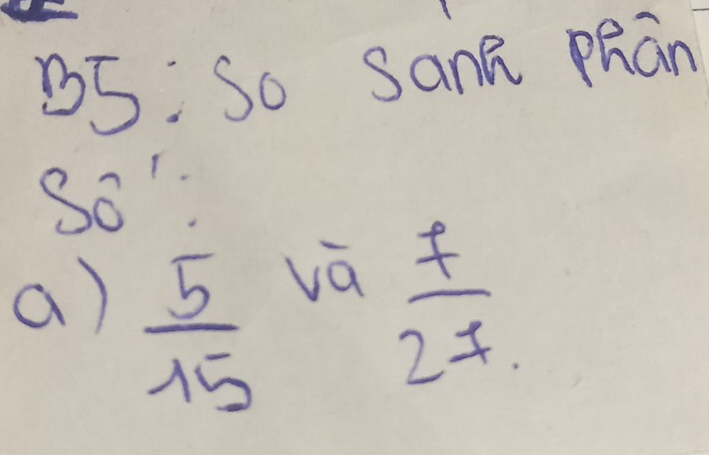 B5: So sánh phân
số:
a) 5/15 và 7/27.